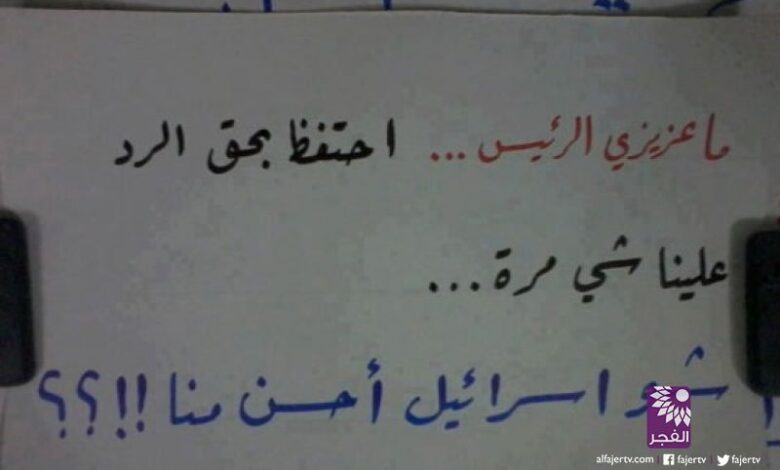 ما عزيزي الرئيس ... احتفظ بحق الرد
علينا شي مرة ...
شو اسرائيل أحسن منا !!؟؟
الفجر
alfajertv.com | fajertv | fajertv